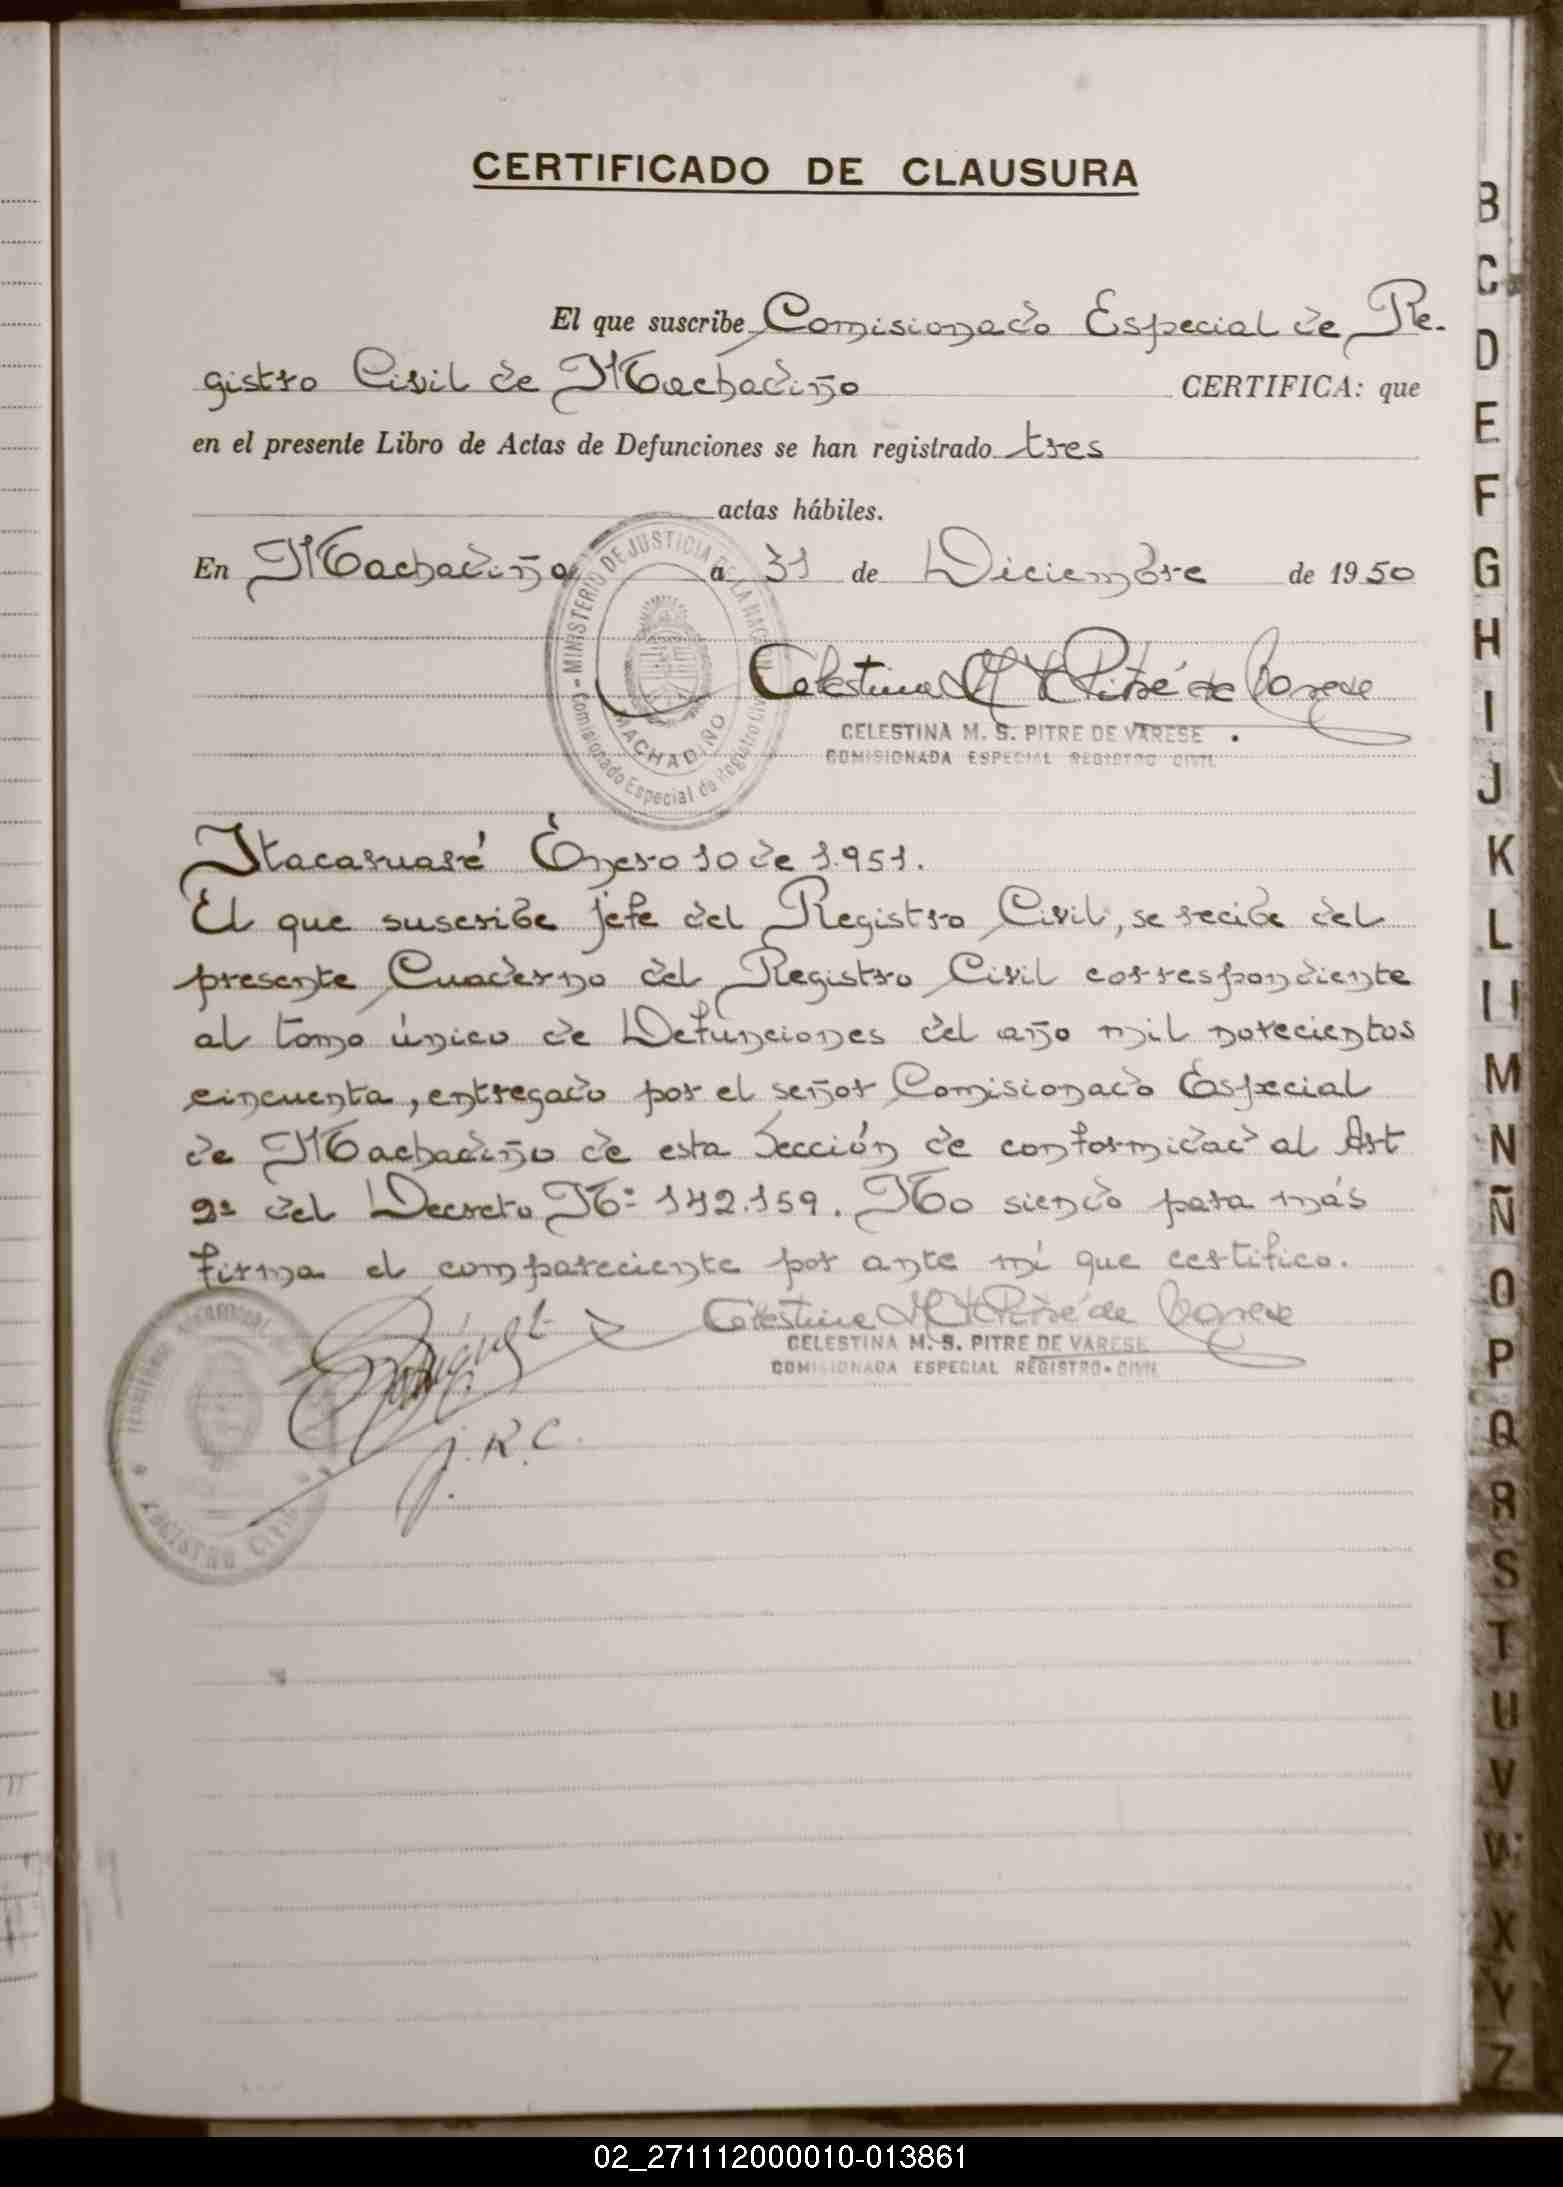 CERTIFICADO DE CLAUSURA
El que suscribe Comisionado Especial de Re-
gistro Civil de Machadiño CERTIFICA: que
en el presente Libro de Actas de Defunciones se han registrado tres
actas hábiles.
En Machadiño a 31 de Diciembre de 1950
MINISTERIO DE JUSTICIA DE LA NACION
MACHADIÑO
Comisionado Especial de Registro Civil
Celestina M S Pitré de Varese
CELESTINA M. S. PITRE DE VARESE
COMISIONADA ESPECIAL REGISTRO CIVIL
Itacaruaré Enero 10 de 1.951.
El que suscribe jefe del Registro Civil, se recibe del
presente Cuaderno del Registro Civil correspondiente
al tomo único de Defunciones del año mil novecientos
cincuenta, entregado por el señor Comisionado Especial
de Machadiño de esta Sección de conformidad al Art
9º del Decreto Nº 142.159. No siendo para más
firma el compareciente por ante mí que certifico.
Celestina M S Pitré de Varese
CELESTINA M. S. PITRE DE VARESE
COMISIONADA ESPECIAL REGISTRO CIVIL
J. R. C.
REGISTRO CIVIL
B
C
D
E
F
G
H
I
J
K
L
Ll
M
N
Ñ
O
P
Q
R
S
T
U
V
W
X
Y
Z
02_271112000010-013861